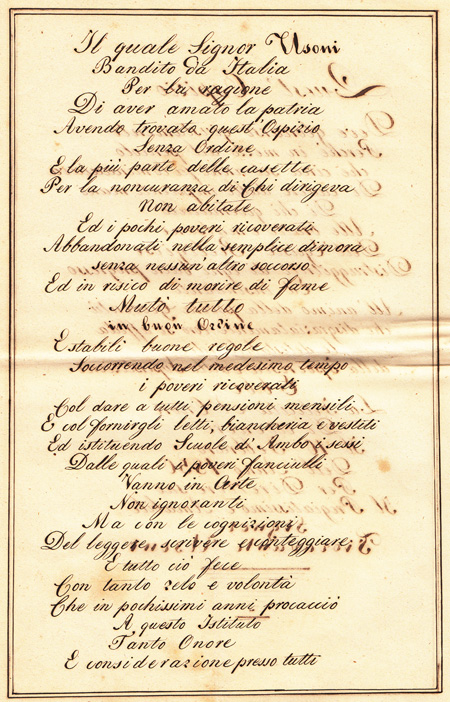 Il quale Signor Usoni
Bandito da Italia
Per la ragione
Di aver amato la patria
Avendo trovato quest'Ospizio
Senza Ordine
E la più parte delle casette
Per la noncuranza di Chi dirigeva
Non abitate
Ed i pochi poveri ricoverati
Abbandonati nella semplice dimora
senza nessun'altro soccorso
Ed in risico di morire di fame
Mutò tutto
in buon Ordine
E stabilì buone regole
Soccorrendo nel medesimo tempo
i poveri ricoverati
Col dare a tutti pensioni mensili
E col fornirgli letti, biancheria e vestiti
Ed istituendo Scuole d'Ambo i sessi
Dalle quali i poveri fanciulli
Vanno in Arte
Non ignoranti
Ma con le cognizioni
Del leggere scrivere e conteggiare
E tutto ciò fece
Con tanto zelo e volontà
Che in pochissimi anni procacciò
A questo Istituto
Tanto Onore
E considerazione presso tutti